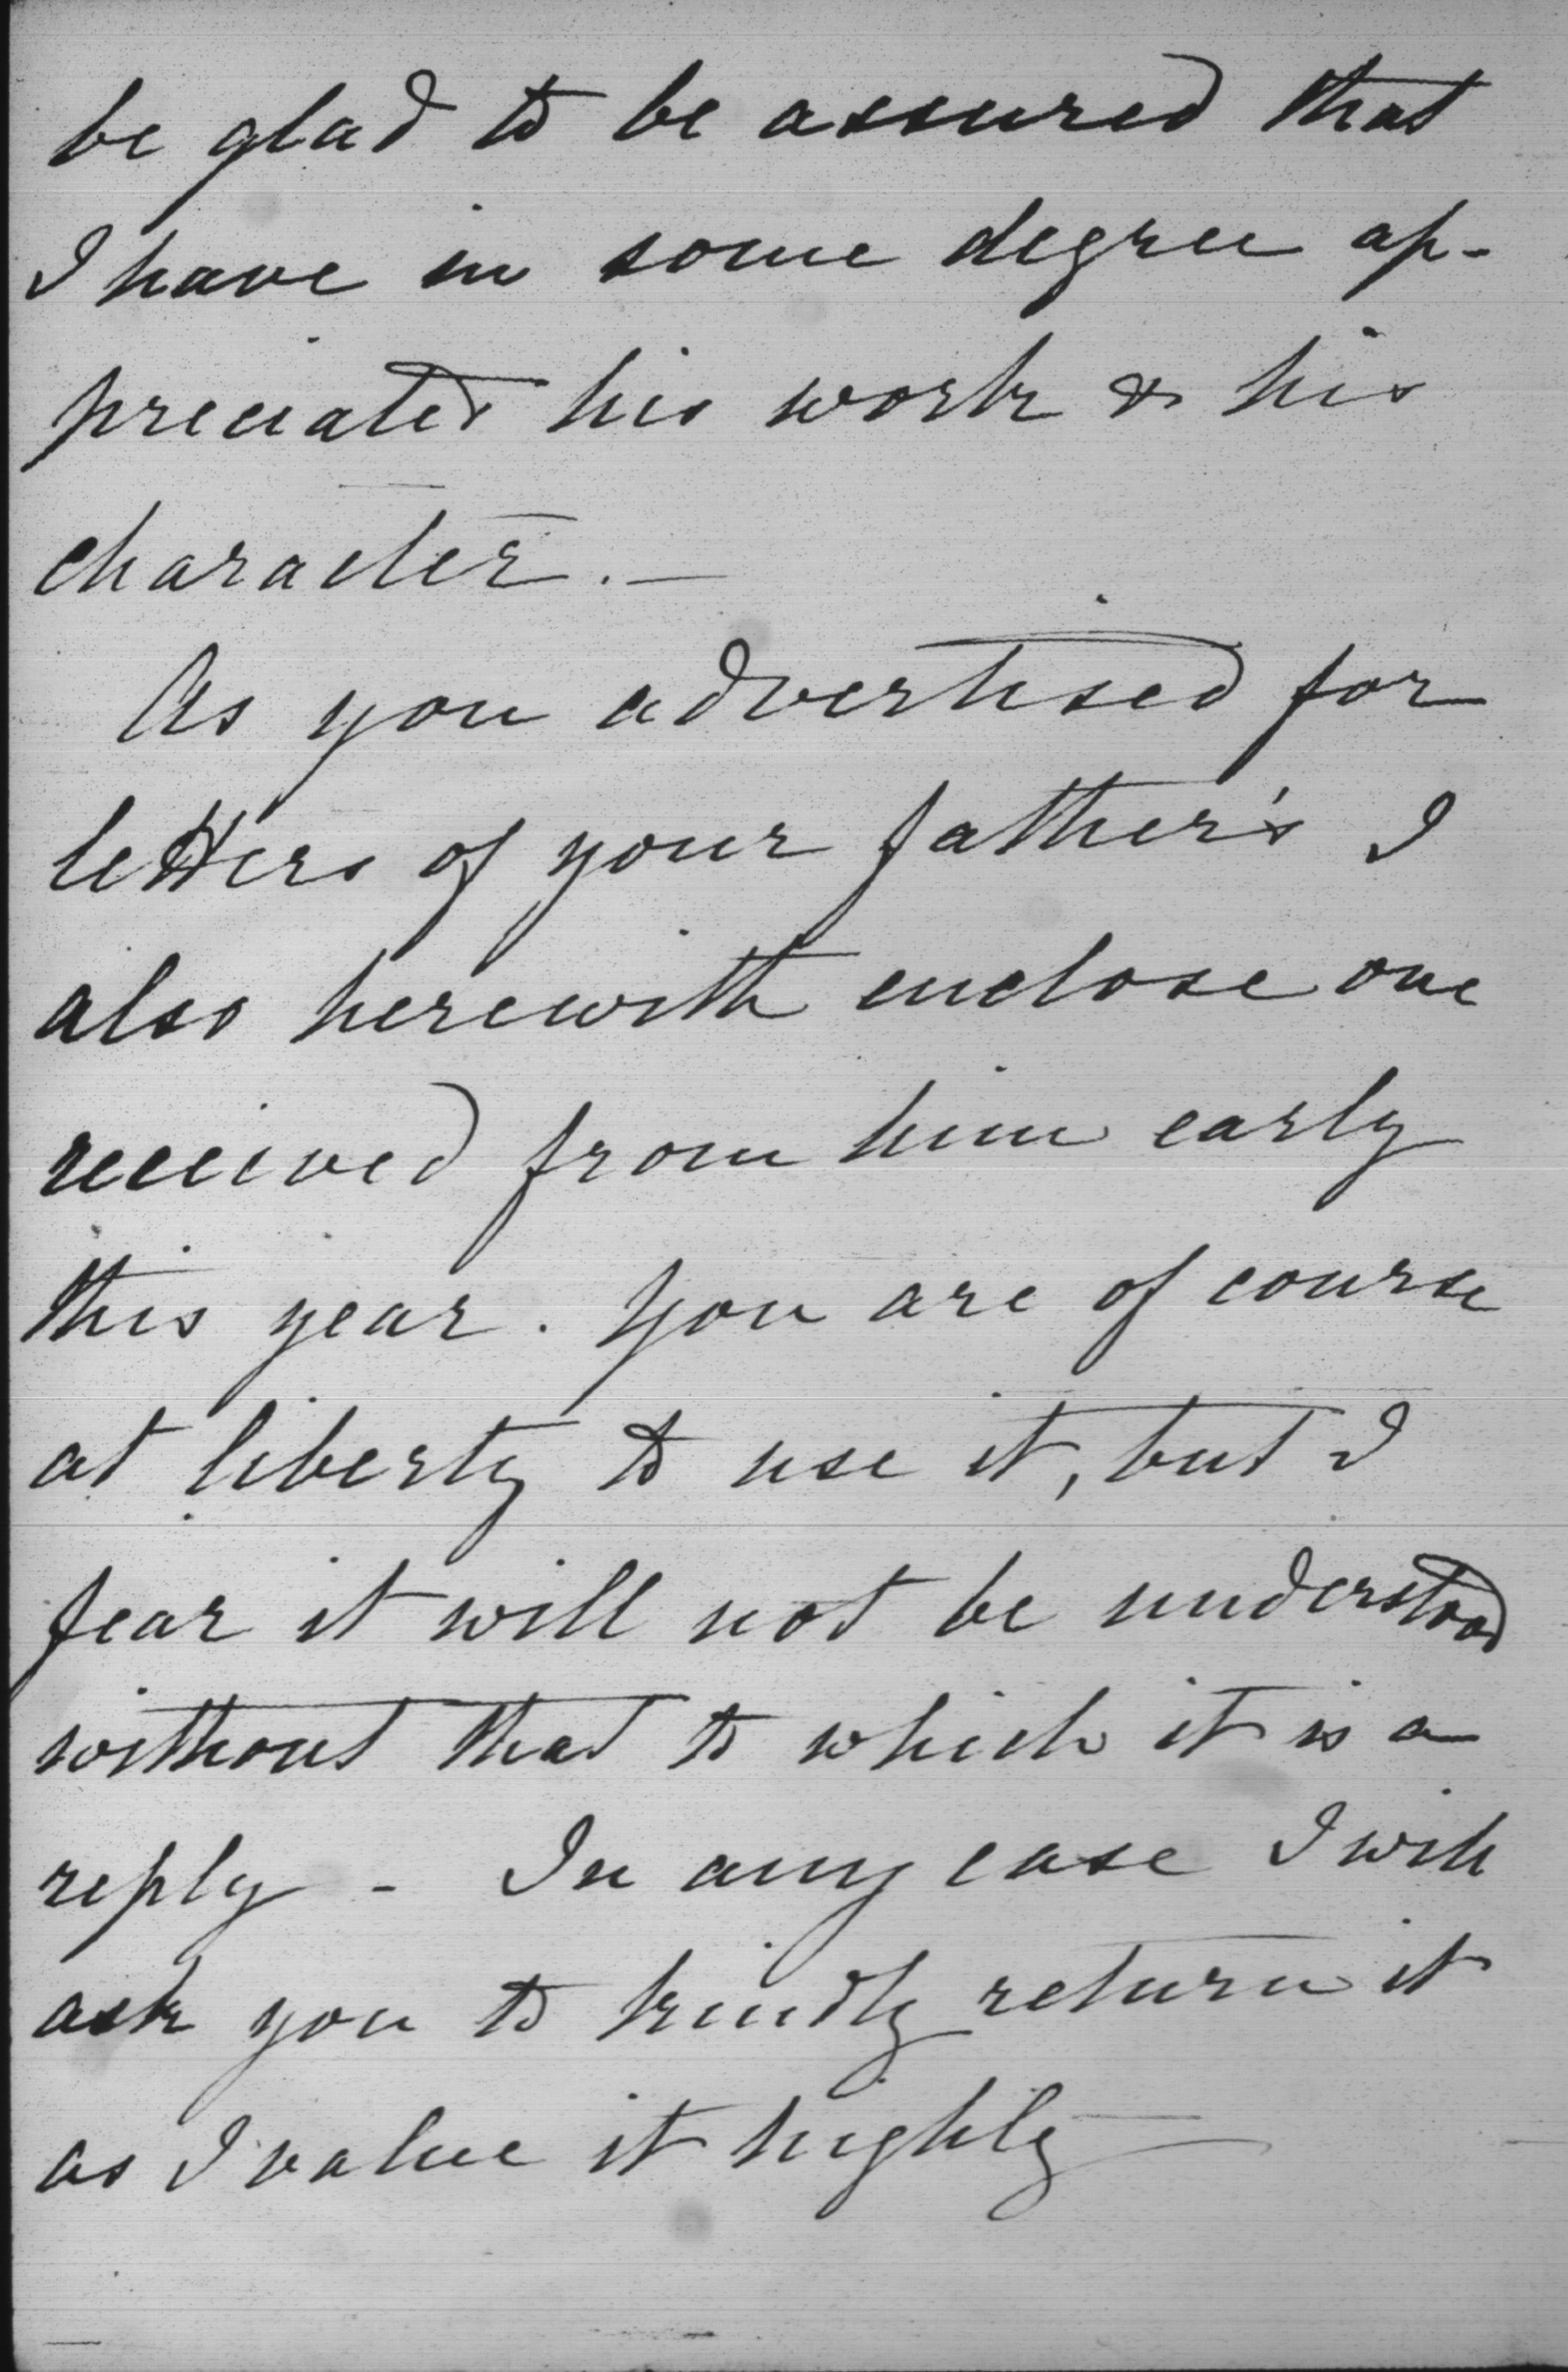 be glad to be assured that
I have in some degree ap-
preciated his work & his
character. —
As you advertised for
letters of your father's I
also herewith enclose one
received from him early
this year. You are of course
at liberty to use it, but I
fear it will not be understood
without that to which it is a
reply - In any case I will
ask you to kindly return it
as I value it highly —